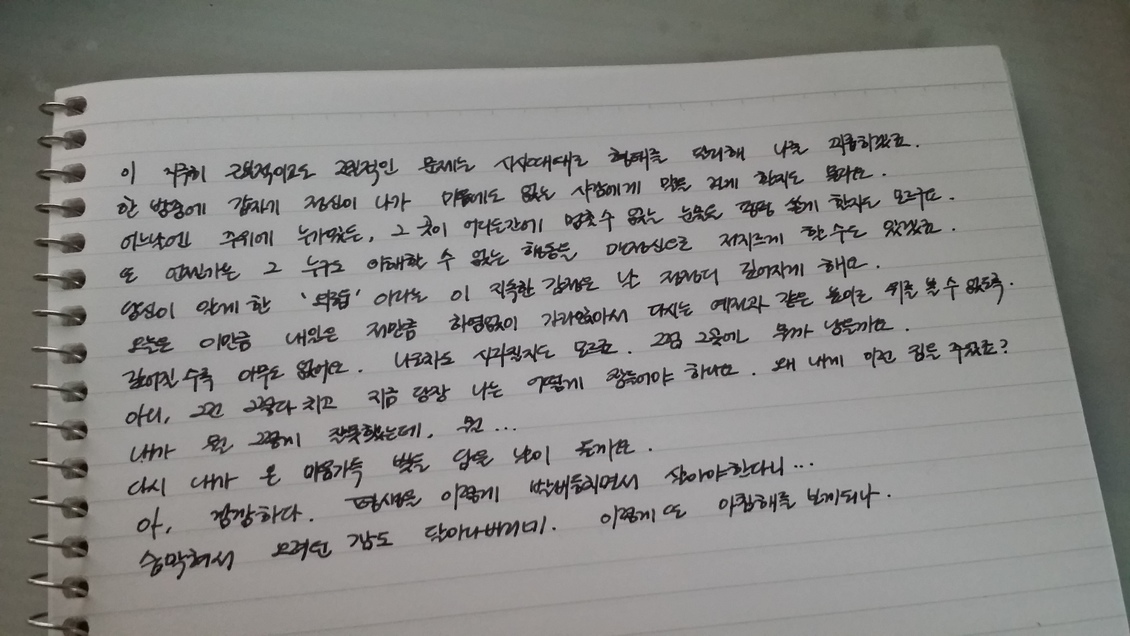 이 지극히 근원적이고도 고질적인 문제는 시시때때로 형태를 달리해 나를 괴롭히겠죠.
한 밤중에 갑자기 정신이 나가 마음에도 없는 사람에게 말을 걸게 할지도 몰라요.
어느날엔 주위에 누가있든, 그 곳이 어디든간에 멈출 수 없는 눈물을 펑펑 쏟게 할지도 모르구요.
또 언젠가는 그 누구도 이해할 수 없는 행동을 맨정신으로 저지르게 할 수도 있겠죠.
당신이 알게 한 '외로움' 이라는 이 지독한 감정은 날 점점 더 깊어지게 해요.
오늘은 이만큼 내일은 저만큼 하염없이 가라앉아서 다시는 예전과 같은 높이로 위를 볼 수 없도록.
깊어질 수록 아무도 없어요. 나조차도 사라질지도 모르죠. 그럼 그곳에는 뭐가 남을까요.
아니, 그건 그렇다 치고 지금 당장 나는 어떻게 잠들어야 하나요. 왜 내게 이런 짐을 주었죠?
내가 뭘 그렇게 잘못했는데, 뭘...
다시 내가 온 마음가득 빛을 담을 날이 올까요.
아, 깜깜하다. 평생을 이렇게 발버둥치면서 살아야한다니...
숨막혀서 오려던 잠도 달아나버리네. 이렇게 또 아침해를 보게되나.